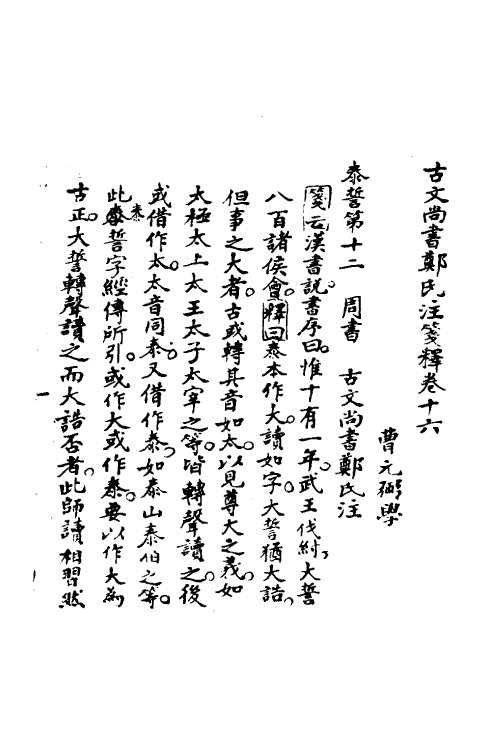 古文尚書鄭氏注箋釋卷十六
曹元弼學
泰誓第十二 周書 古文尚書鄭氏注
箋云漢書說書序曰惟十有一年武王伐紂大誓
八百諸侯會釋曰泰本作大讀如字大誓猶大誥
但事之大者古或轉其音如太以見尊大之義如
太極太上太王太子太宰之等皆轉聲讀之後
或借作太太音同泰又借作泰如泰山泰伯之等
此泰誓字經傳所引或作大或作泰要以作大為
古正大誓轉聲讀之而大誥否者此師讀相習然
一